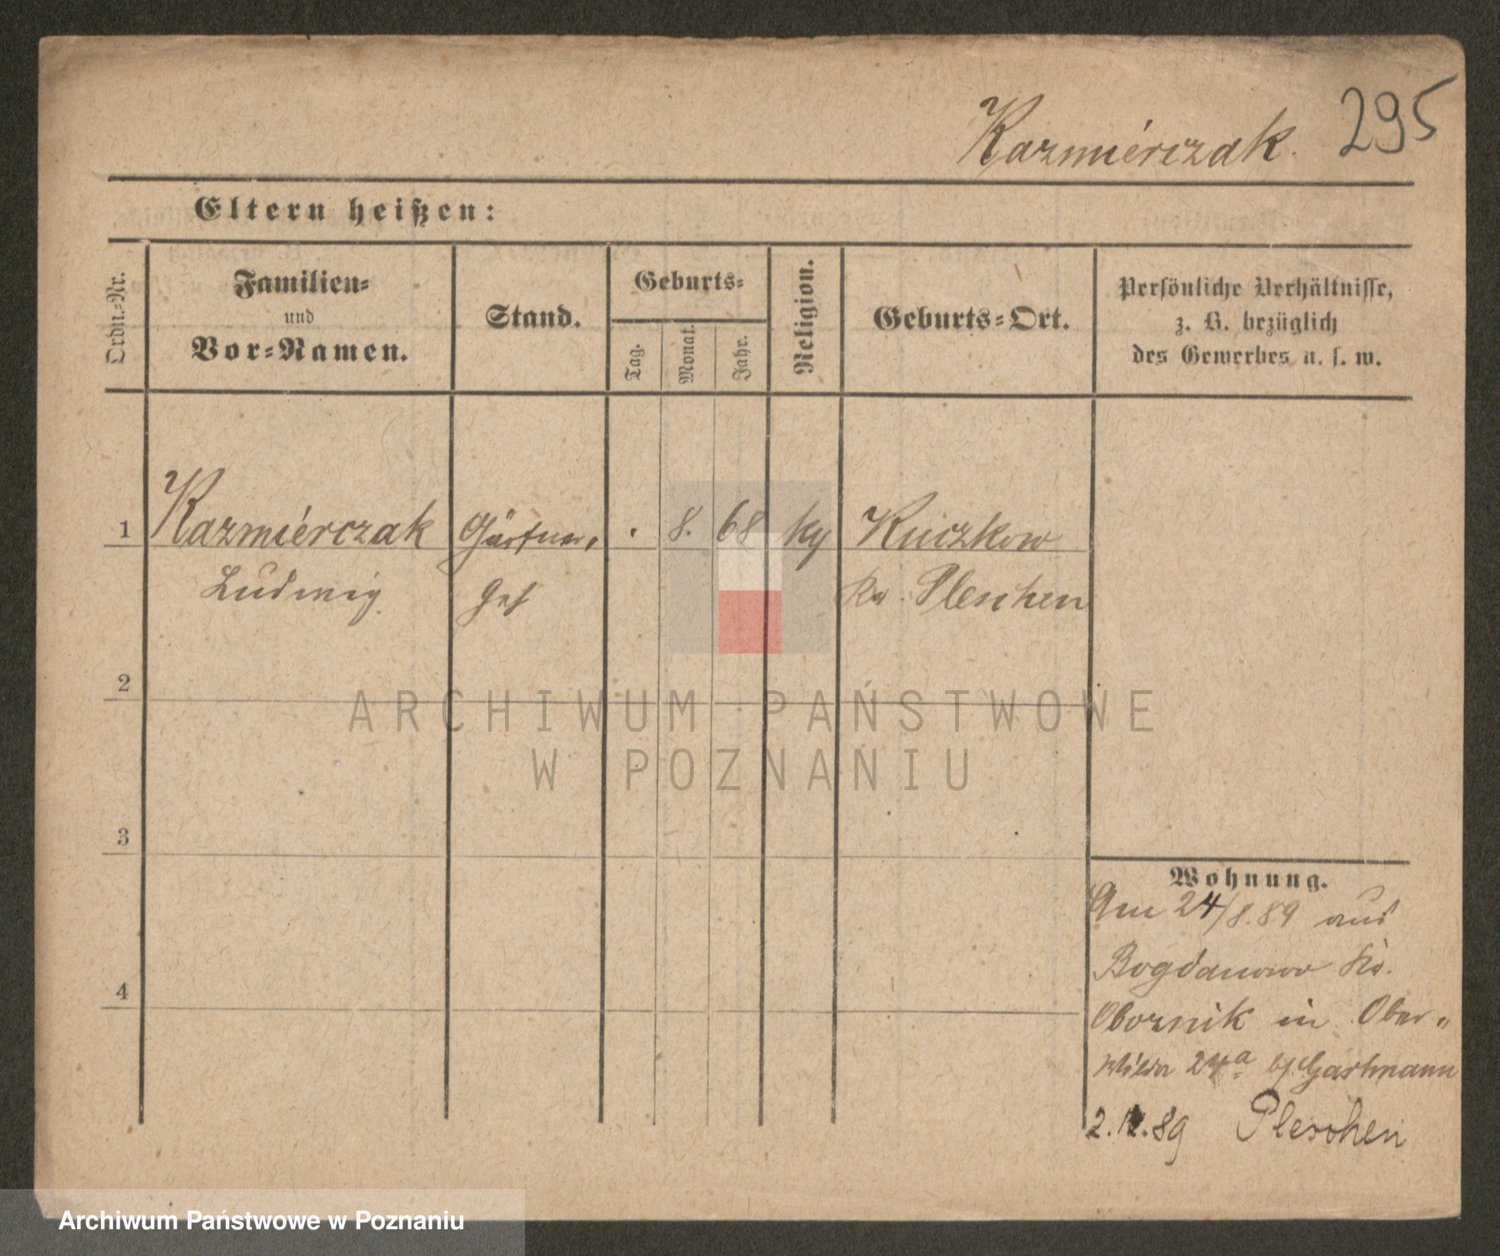 Kazmiérczak. 295
Eltern heißen:
Ordn.-Nr.
Familien-
und
Vor-Namen.
Stand.
Geburts-
Tag.
Monat.
Jahr.
Religion.
Geburts-Ort.
Persönliche Verhältnisse,
z. B. bezüglich
des Gewerbes u. s. w.
1 Kazmiérczak Gärtner, 8. 68 Kuczkow
Ludwig Kr. Pleschen
2
ARCHIWUM PAŃSTWOWE
W POZNANIU
3
Wohnung.
Am 24/8.89 aus
Bogdanowo Kr.
Obornik in Ober-
wilda 24a b/. Gartmann
2.12.89 Pleschen
4
Archiwum Państwowe w Poznaniu